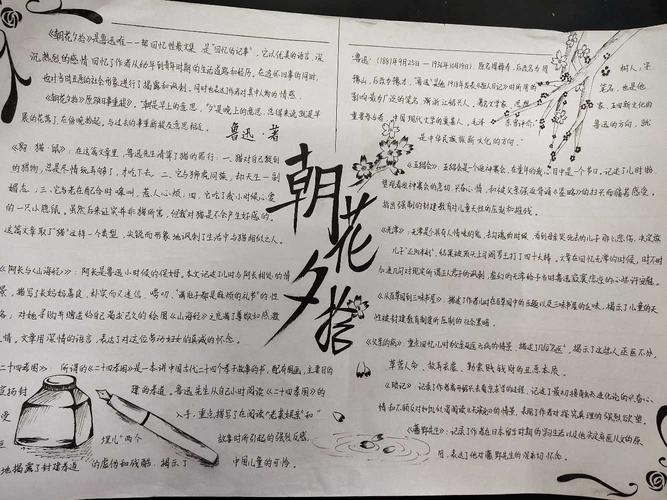 《朝花夕拾》是鲁迅唯一一部回忆性散文集,是"回忆的记事",它以优美的语言,深
沉、热烈的感情回忆了作者从幼年到青年时期的生活道路和经历,在追怀旧事的同时,
也对当时
的社会形象进行了揭露和讽刺,同时也表达作者对其中人物的情感.
《朝花夕拾》原名《旧事重提》,"朝"是早上的意思,"夕"是晚上的意思,
早晨的花落了,在傍晚拾起,与过去的事重新提及意思相近.
鲁迅·著
《狗·猫·鼠》:在这篇文章里,鲁迅先生清算了猫的罪行:一.猫对自己捉到
的猎物,总是尽情玩弄够了,才吃下去.二.它与狮虎同族,却天生一副
媚态;三、它老在配合时嗥叫,惹人心烦;四、它吃了我小时候心爱
的一只小隐鼠.虽然后来证实并非猫所害,但我对猫是不会产生好感的.
这篇文章取了"猫"这样一个类型,尖锐而形象地讽刺了生活中与猫相似之人.
《阿长与《山海经》》:阿长是鲁迅小时候的保姆.本文记述了儿时与阿长相处的情
景,描写了长妈妈善良、朴实而又迷信、唠叨、"满肚子都是麻烦的礼节"的性
格;对她寻购并赠送给自己渴求已久的绘图《山海经》充满了尊敬和感激
情,文章用深情的语言,表达了对这位劳动妇女的真诚的怀念.
二十四孝图》:所谓的《二十四孝图》是一本讲中国古代二十四个孝子故事的书,配有图画,主要目的
宣扬封
建的孝道.鲁迅先生从自己小时阅读《二十四孝图》的
受
入手,重点描写了在阅读"老莱娱亲"和"
埋儿"两个
故事时所引起的强烈反感,
地揭露了封建孝道
的虚伪和残酷,揭示了
中国儿童的可怜.
朝花夕拾
鲁迅(1881年9月25日-1936年10月19日),原名周樟寿,后改名为周
树人,字
豫山,后改为豫才,"鲁迅"是他1918年发表《狂人日记》时所用的
笔名,也是他
影响最为广泛的笔名,浙江绍兴人.著名文学家、思想
家、五四新文化的
重要参与者,中国现代文学的奠基人.毛泽
东曾评价:
鲁迅的方向,就
是中华民族新文化的方向."
《五猖会》:五猖会是一个迎神赛会,在童年的我心目中是一个节日.记述了儿时盼
望观看迎神赛会的急切,兴奋心情,和被父亲强迫背诵《鉴略》的扫兴而痛苦感受.
指出强制的封建教育对儿童天性的压制和摧残.
《无常》:无常是个具有人情味的鬼,去勾魂的时候,看到母亲哭死去的儿子那么悲伤,决定放
儿子"
结果被顶头上司阎罗王打了四十大棒.文章在回忆无常的时候,时不时
加进几句对现实所谓正人君子的讽刺,虚幻的无常给予当时鲁迅寂寞悲凉的心些许安慰.
《从百草园到三味书屋》:描述了作者儿时在百草园中的乐趣以及三味书屋的
揭示了儿童的天
性被封建教育制度所压制的社会黑暗.
《父亲的病》:重点回忆儿时为父亲医病的情景,描述了几位"名医",揭示了这些人巫医不分,
草菅人命,故弄玄虚,勒索钱财的丑恶本质.
《琐记》:记录了作者离开绍兴去南京求学的过程,记述了最初接触
进化论的兴奋心
情和不顾反对如饥似渴阅读《天演论》的情景,表现了作者对探究真理的强烈欲望.
《藤野先生》:记录了作者在日本留学时期的学习生活以及他决定弃医从文的原
因,表达了他对藤野先生的深切怀念.